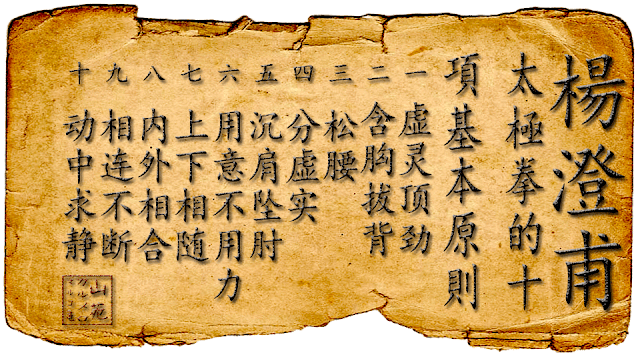 楊澄甫
太極拳的十
項基本原則
一 虚灵顶劲
二 含胸拔背
三 松腰
四 分虚实
五 沉肩坠肘
六 用意不用力
七 上下相随
八 内外相合
九 相连不断
十 动中求静
山苑